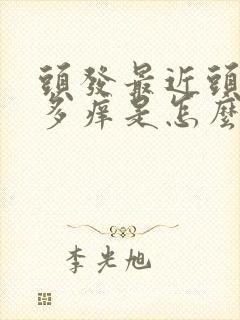 頭發最近頭
多癢是怎麼
李光旭